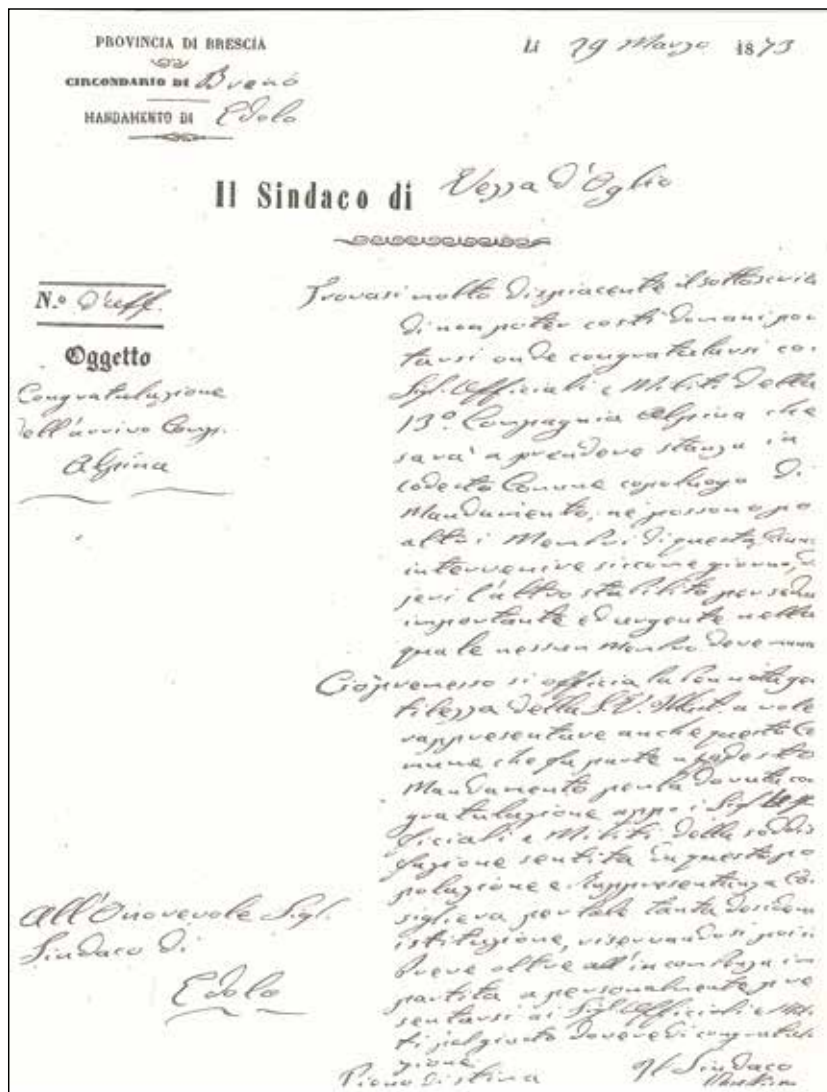 PROVINCIA DI BRESCIA
Li 29 Marzo 1873
CIRCONDARIO DI Breno
MANDAMENTO DI Edolo
Il Sindaco di Vezza d'Oglio
N.º d'uff.
Oggetto
Congratulazione
dell'arrivo Comp.
Alpina
Trovasi molto dispiacente il sottoscritto
di non poter costì domani por
tarsi onde congratularsi co.
Sigl. Officiali e Militi della
13º Compagnia Alpina che
sarà a prendere stanza in
codesto Comune capoluogo di
Mandamento, nè possono po
altri Membri di questa
intervenire siccome giorno,
jeri l'altro stabilito per seduta
importante ed urgente nella
quale nessun Membro deve
Ciò premesso si officia la ben nota ge
tilezza della S.V. a vole
rappresentare anche questo Co
mune che fa parte a codesto
Mandamento per la dovuta co
gratulazione appo i Sigl. Uff
ficiali e Militi della soddis
fazione sentita in questa po
polazione e Rappresentanza Co
sigliera per tale tanta
istituzione, riservandosi poi in
breve oltre all'incombenza im
partita a personalmente pre
sentarsi ai Sigl. Officiali e Mili
ti pel giusto dovere di congratula
zione
Pieno di stima
Il Sindaco
All'Onorevole Sigl.
Sindaco di
Edolo